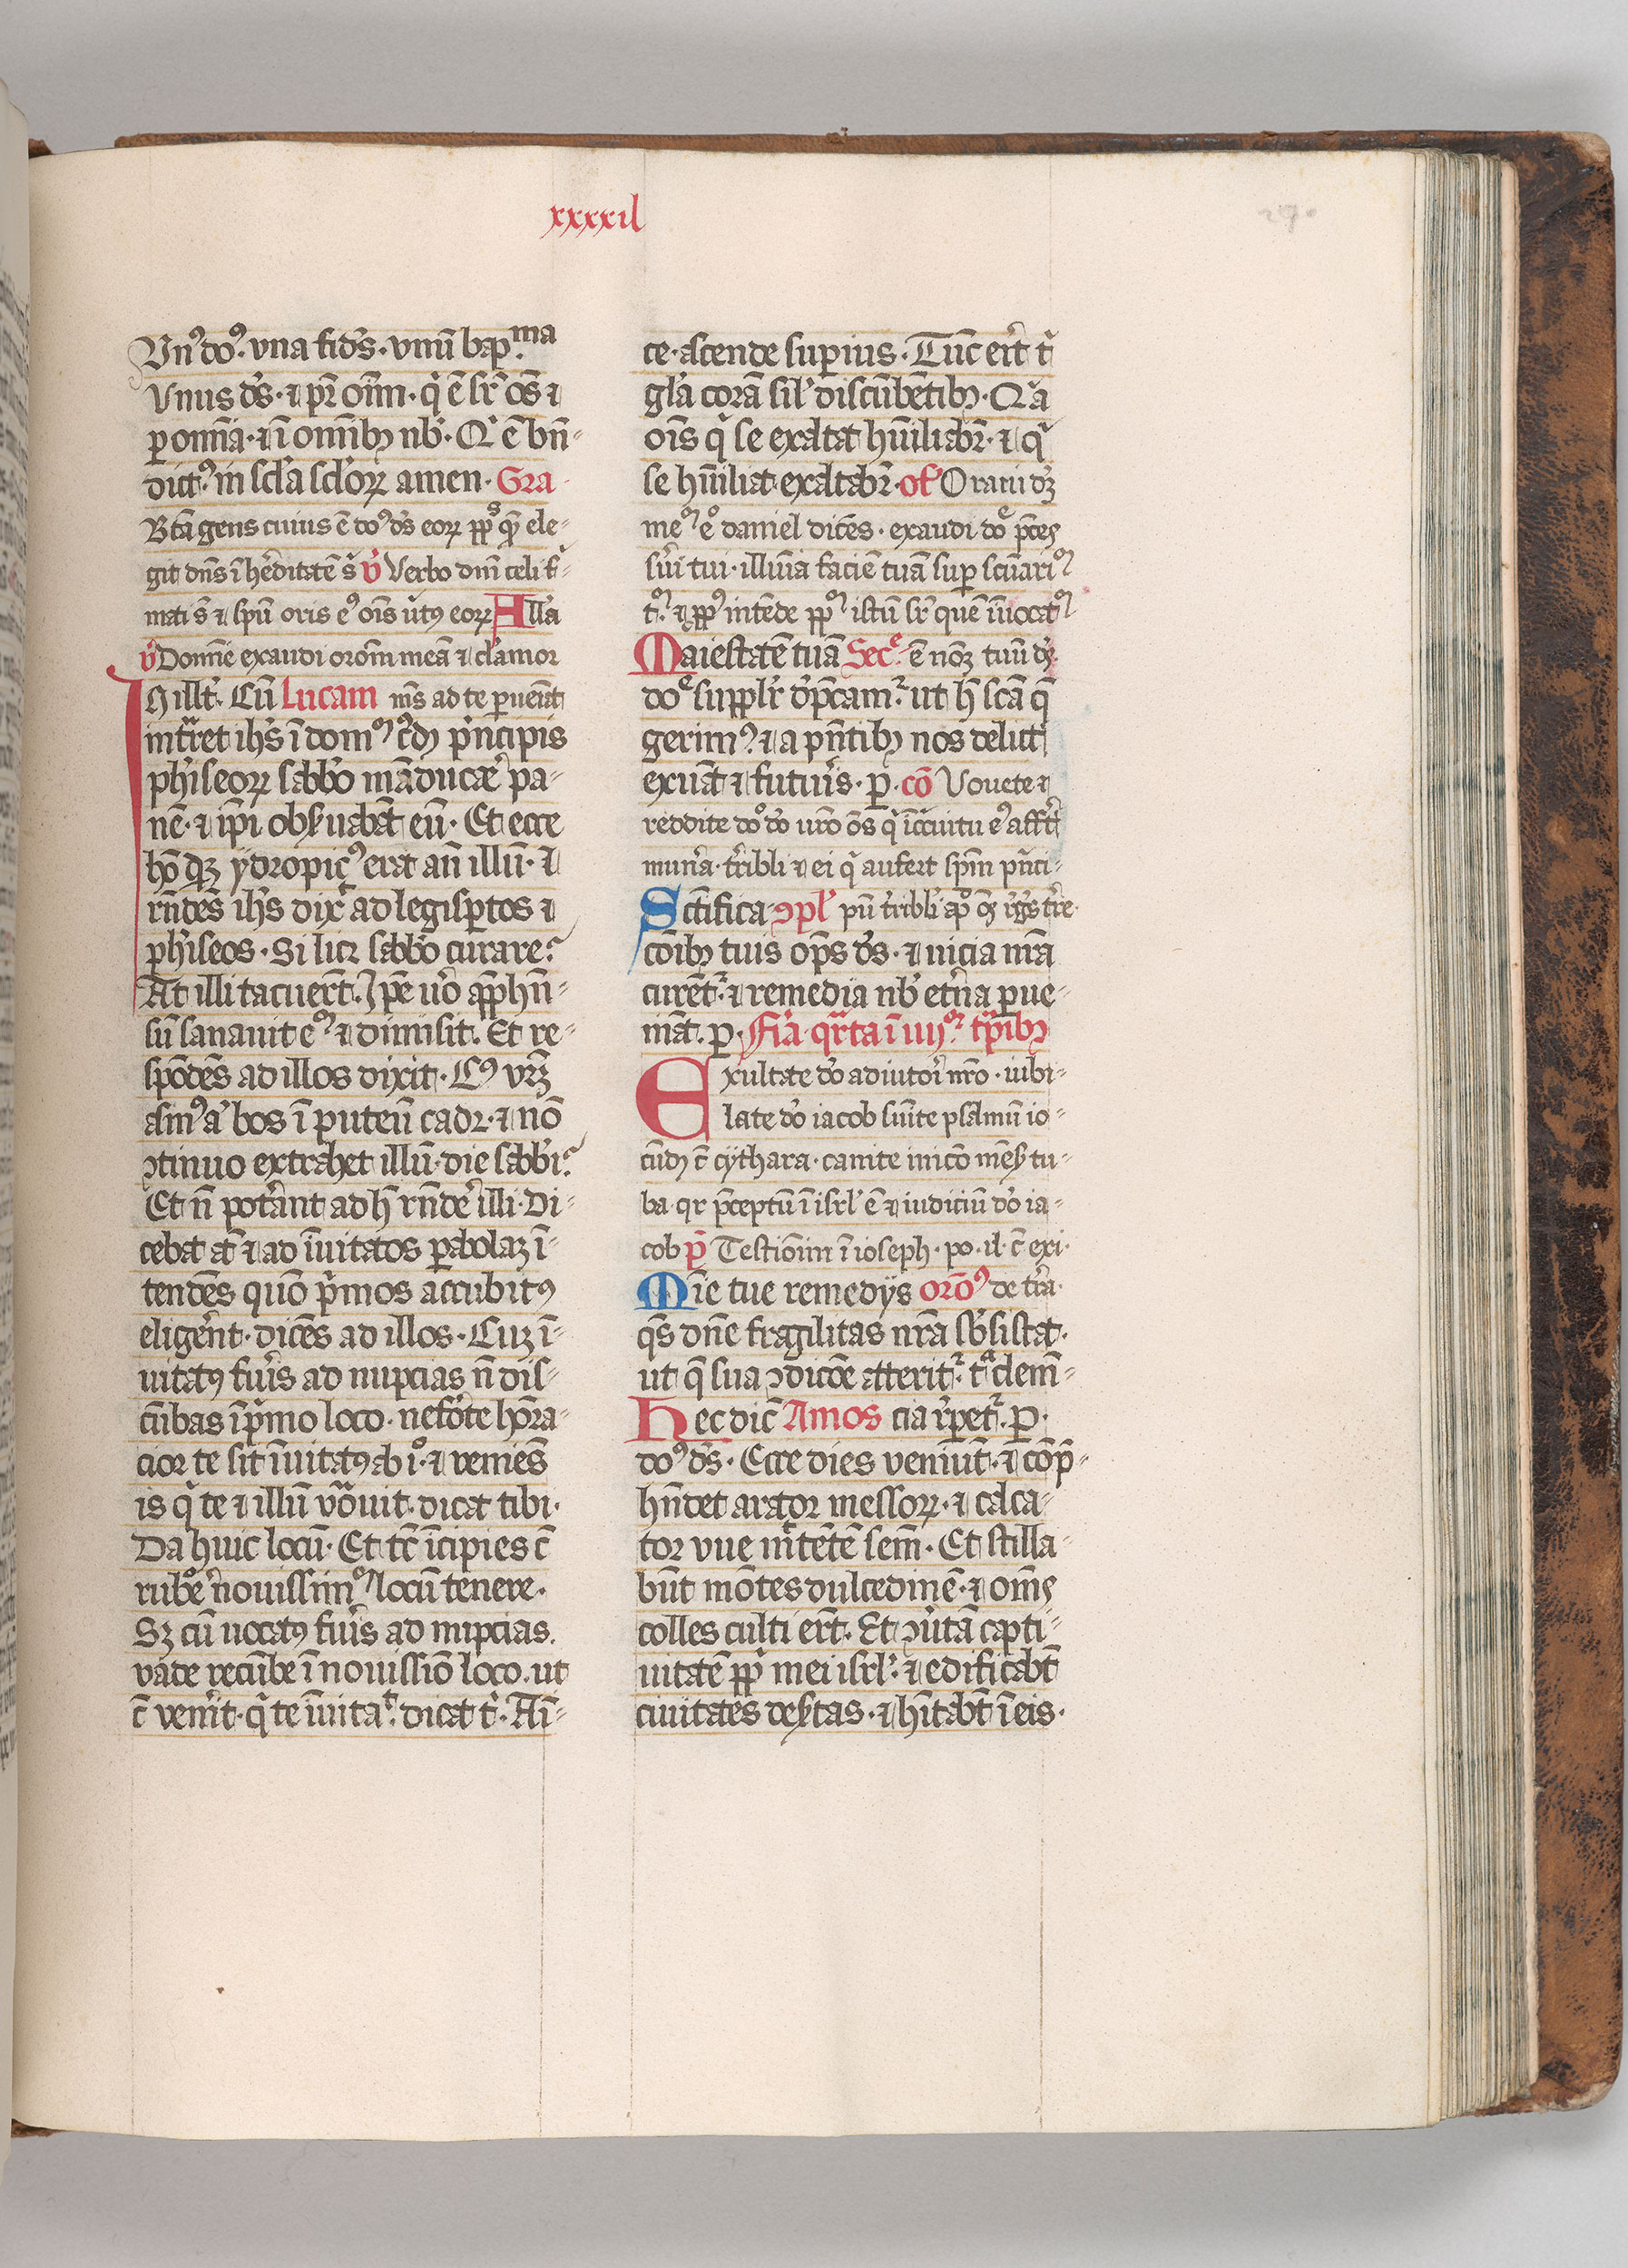 xxxxii
Vnꝰ doꝰ. vna fids̄. vnū bap.ma
Vnus ds̄. ⁊ pr̄ oīm. q̇ ē sr̄ os̄ ⁊
p om̄ia. ⁊ ī om̄ibꝫ nb̄. Q̇ ē bn̄-
dictꝰ in scl̄a scl̄oꝝ amen. Gra
Btā gens cuius ē doꝰ ds̄ eoꝝ pplꝰ quē ele-
git dn̄s ī heditatē s̄ v̄ Verbo dn̄i celi f-
mati s̄ ⁊ spū oris eꝰ oīs v̄tꝰ eoꝝ All̄a
v̄ Domīe exaudi orom̄ meā ⁊ clāmor
In illt̄. Cū Lucam m̄s ad te pueīat
int̄ret ihs̄ ī domꝰ cꝰdꝫ pncipis
phīseoꝝ sabb̄o māducar̄e pa-
nē. ⁊ ip̄i obs̄uabāt eū. Et ecce
hō qꝫ ydropicꝰ erat an̄ illū. ⁊
rn̄dēs ihs̄ dixit ad legisptos ⁊
phīseos. Si licꝫ sabb̄o curare?
At illi tacuert̄. Ipē v̄o app̄hn̄-
sū sanauit eꝰ ⁊ dimisit. Et re-
spōdēs ad illos dixit. Cꝰ vr̄ꝫ
asinꝰ aꝰ bos ī puteū cadꝫ. ⁊ nō
ↄtinuo extrahet illū. die sabb̄i?
Et n̄ pot̄ant ad h̄ rn̄dēe illi. Di-
cebat āt ⁊ ad īuitatos pabolaꝫ ī-
tendēs quō p̄mos accubitꝰ
eligēnt. dicēs ad illos. Cuꝫ ī-
uitatꝰ fuīs ad nupcias n̄ dis-
cūbas ī p̄mo loco. ne foīte hōra-
cior te sit īuitatꝰ ab ı̊. ⁊ veniēs
is q̇ te ⁊ illū vōauit. dicat tibi.
Da huic locū. Et tc̄ īcipies c̄
rubōe nouissimꝰ locū tenere.
Sꝫ cū uocatꝰ fuīs ad nupcias.
vade recūbe ī nouissīo loco. ut
c̄ venīt. q̇ te īuitaᵗ. dicat t̄. Aī-
ce. ascende supius. Tūc erīt t̄
glā corā sil̄ discūbētibꝫ. Q̄a
oīs q̇ se exaltat hūiliabr̄. ⁊ q̇
se hūiliat exaltabr̄. of̄ Oraui dꝫ
meꝰ eº daniel dicēs. exaudi do͛ pces
sīui tui. illūia faciē tuā sup scūariꝰ
tꝰ. ⁊ ppꝰ intēde pplꝰ istū sr̄ quē īuocatꝰ
Maiestatē tuā Secᵉ. ē nōꝫ tuū dꝫ.
do͛ supplr̄ dp̄camꝰ. ut h̄ scā q̄
gerimꝰ. ⁊ a pn̄tibꝫ nos delict̄
exuāt ⁊ futuīs. p. cō Vouete ⁊
reddite doº d̄o uro ōs q̇ ī c̄cuitu eꝰ affīt
mun̄a. t̄ribli ⁊ ei q̇ aufert spm̄ pnci-
Sctīfica ↄpl̄ pū t̄ribl̄i apº oꝫ rgs̄ tr̄e
cōibꝫ tuis ops̄ ds̄. ⁊ uicia nr̄a
curētꝰ. ⁊ remedia nb̄ etn̄a pue-
niāt. p. Fīa qr̄ta ī iiijᵒʳ tp̄ibꝫ
Exultate d̄o adiutoī nr̄o. iubi-
late d̄o iacob sumīte psalmū io-
cūdꝫ c̄ cythara. canite inicō mēs̄ tu-
ba. qr̄ pceptū ī isrl̄ ē ⁊ iudiciū d̄o ia-
cob p̄ Testioniū ī ioseph. po. il̄. c̄ exi.
Mīe tue remedijs orōꝰ de tr̄a.
qs̄ dn̄e fragilitas nr̄a sb̄sistat.
ut q̄ sua ↄdicōe atteritꝰ. tᵃ clem̄-
Hec dic̄ Amos cia rp̄etꝰ. p.
doꝰ ds̄. Ecce dies veniūt. ⁊ cōp̄-
hn̄det arator messoꝝ. ⁊ calca-
tor vue mᵗtētē sem̄. Et stilla-
būt mōtes dulcedinē. ⁊ om̄s
colles culti ert̄. Et ↄūtā capti-
uitatē ppli mei isrl̄. ⁊ edificabt̄
ciuitates des̄tas. ⁊ hītabt̄ ī eis.